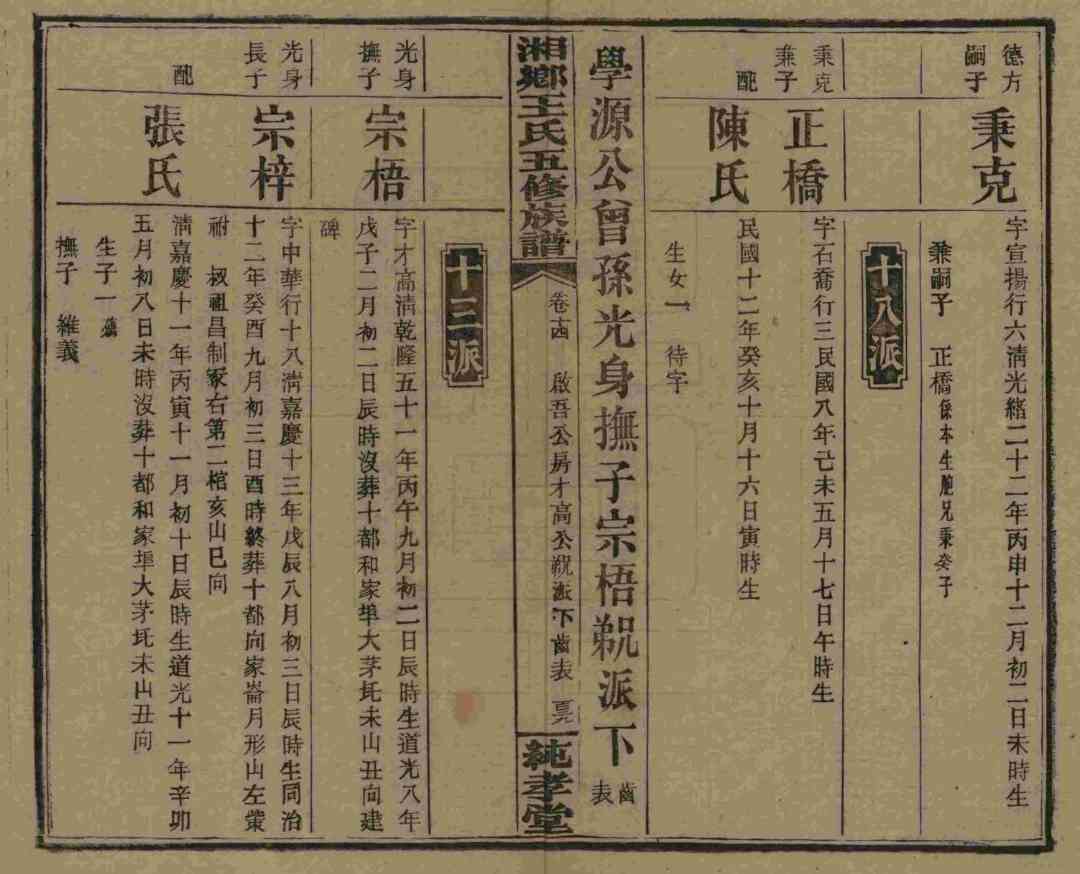 德方
嗣子
秉克
字宣揚行六清光緒二十二年丙申十二月初二日未時生
兼嗣子 正橋係本生胞兄秉癸子
十八派
秉克
兼子
正橋
字石喬行三民國八年己未五月十七日午時生
配
陳氏
民國十二年癸亥十月十六日寅時生
生女一 待字
學源公曾孫光身撫子宗梧㒭派下齒表
湘鄉王氏五修族譜
卷十四 啟吾公房才高公㒭派下齒表
純孝堂
十三派
光身
撫子
宗梧
字才高清乾隆五十一年丙午九月初二日辰時生道光八年
戊子二月初二日辰時沒葬十都和家埠大茅坵未山丑向建
碑
光身
長子
宗梓
字中華行十八清嘉慶十三年戊辰八月初三日辰時生同治
十二年癸酉九月初三日酉時終葬十都向家崙月形山左塋
祔 叔祖昌制冢右第二棺亥山巳向
配
張氏
清嘉慶十一年丙寅十一月初十日辰時生道光十一年辛卯
五月初八日未時沒葬十都和家埠大茅坵未山丑向
生子一
撫子 維義